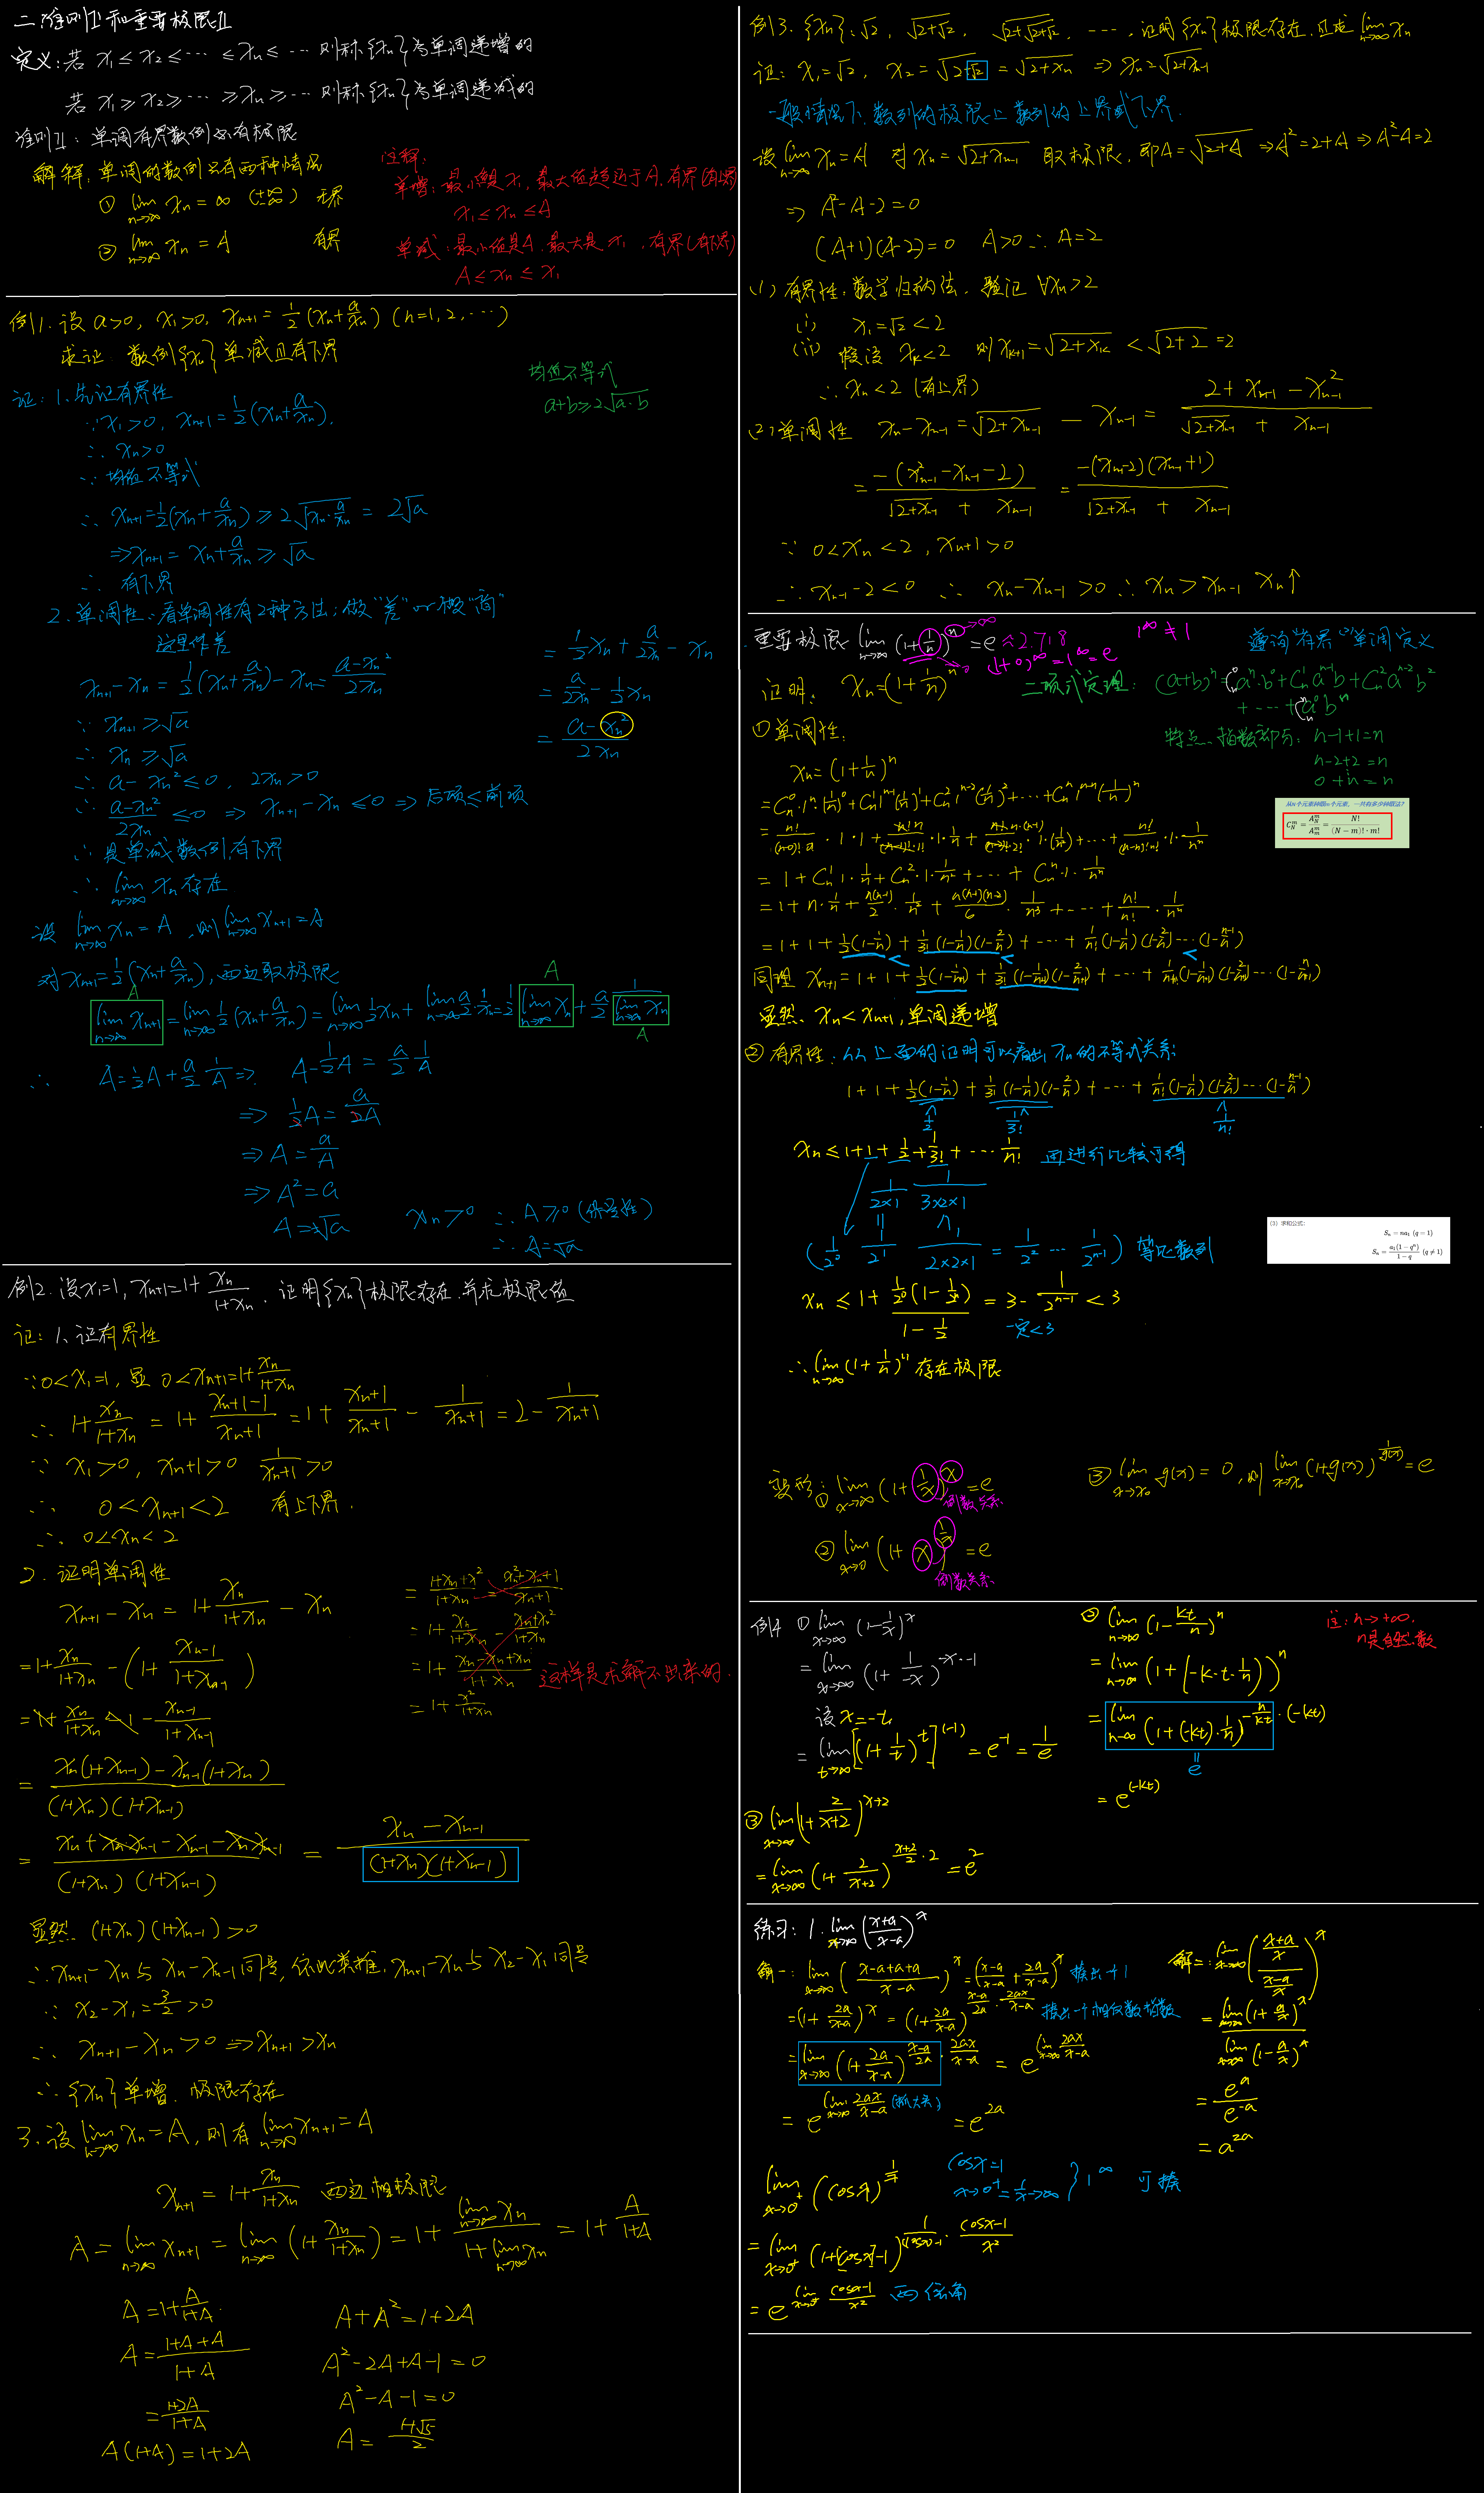 二.准则Ⅱ和重要极限Ⅱ
定义:若 x₁≤x₂≤⋯≤xₙ≤⋯ 则称{xₙ}为单调递增的
若 x₁≥x₂≥⋯≥xₙ≥⋯ 则称{xₙ}为单调递减的
准则Ⅱ:单调有界数例必有极限
解释:单调的数例只有两种情况
① lim(n→∞) xₙ = ∞ (±∞) 无界
② lim(n→∞) xₙ = A 有界
注释:
单增:最小值是x₁,最大值趋近于A,有界(有上界)
x₁≤xₙ≤A
单减:最小值是A,最大是x₁,有界(有下界)
A≤xₙ≤x₁
例1.设a>0, x₁>0, xₙ₊₁=½(xₙ+a/xₙ) (n=1,2,⋯)
求证:数例{xₙ}单减且有下界
均值不等式
a+b≥2√(a·b)
证:1.先证有界性
∵x₁>0, xₙ₊₁=½(xₙ+a/xₙ).
∴xₙ>0
∵均值不等式
∴xₙ₊₁=½(xₙ+a/xₙ)≥2√(xₙ·a/xₙ)=2√a
⇒xₙ₊₁=xₙ+a/xₙ≥√a
∴有下界
2.单调性:看单调性有2种方法:做"差"or做"商"
这里作差
xₙ₊₁-xₙ=½(xₙ+a/xₙ)-xₙ=(a-xₙ²)/2xₙ
=½xₙ+a/2xₙ-xₙ
=a/2xₙ-½xₙ
=(a-xₙ²)/2xₙ
∵xₙ₊₁≥√a
∴xₙ≥√a
∴a-xₙ²≤0, 2xₙ>0
∴(a-xₙ²)/2xₙ≤0 ⇒ xₙ₊₁-xₙ≤0 ⇒ 后项≤前项
∴是单减数例,有下界
∴lim(n→∞) xₙ存在
设 lim(n→∞) xₙ=A,则lim(n→∞) xₙ₊₁=A
对xₙ₊₁=½(xₙ+a/xₙ),两边取极限
A A
lim(n→∞) xₙ₊₁=lim(n→∞) ½(xₙ+a/xₙ)=lim(n→∞) ½xₙ+lim(n→∞) a/2·1/xₙ=½ lim(n→∞) xₙ+a/2·1/lim(n→∞) xₙ
A
∴ A=½A+a/2·1/A ⇒ A-½A=a/2·1/A
⇒ ½A=a/2A
⇒A=a/A
⇒A²=a
A=±√a xₙ>0 ∴A≥0(保号性)
∴A=√a
例2.设x₁=1, xₙ₊₁=1+xₙ/(1+xₙ).证明{xₙ}极限存在.并求极限值
证:1、证有界性
∵0<x₁=1,显 0<xₙ₊₁=1+xₙ/(1+xₙ)
∴1+xₙ/(1+xₙ)=1+(xₙ+1-1)/(xₙ+1)=1+(xₙ+1)/(xₙ+1)-1/(xₙ+1)=2-1/(xₙ+1)
∵x₁>0, xₙ+1>0 1/(xₙ+1)>0
∴ 0<xₙ₊₁<2 有上下界.
∴0<xₙ<2
2.证明单调性
xₙ₊₁-xₙ=1+xₙ/(1+xₙ)-xₙ
=1+xₙ/(1+xₙ)-(1+xₙ₋₁/(1+xₙ₋₁))
=1+xₙ/(1+xₙ)-1-xₙ₋₁/(1+xₙ₋₁)
=(xₙ(1+xₙ₋₁)-xₙ₋₁(1+xₙ))/((1+xₙ)(1+xₙ₋₁))
=(xₙ+xₙxₙ₋₁-xₙ₋₁-xₙxₙ₋₁)/((1+xₙ)(1+xₙ₋₁))=(xₙ-xₙ₋₁)/((1+xₙ)(1+xₙ₋₁))
=1+xₙ/(1+xₙ)-(xₙ+xₙ²)/(1+xₙ)
=1+x²/(1+xₙ)
这样是求解不出来的.
显然.(1+xₙ)(1+xₙ₋₁)>0
∴xₙ₊₁-xₙ与xₙ-xₙ₋₁同号,依此类推,xₙ₊₁-xₙ与x₂-x₁同号
∵x₂-x₁=3/2>0
∴xₙ₊₁-xₙ>0⇒xₙ₊₁>xₙ
∴{xₙ}单增.极限存在
3.设lim(n→∞) xₙ=A,则有lim(n→∞) xₙ₊₁=A
xₙ₊₁=1+xₙ/(1+xₙ) 两边相极限
A=lim(n→∞) xₙ₊₁=lim(n→∞) (1+xₙ/(1+xₙ))=1+lim(n→∞) xₙ/(1+lim(n→∞) xₙ)=1+A/(1+A)
A=1+A/(1+A).
A=(1+A+A)/(1+A)
=(1+2A)/(1+A)
A(1+A)=1+2A
A+A²=1+2A
A²-2A+A-1=0
A²-A-1=0
A=(1+√5)/2
例3.{xₙ}:√2, √(2+√2), √(2+√(2+√2)), ⋯,证明{xₙ}极限存在.且求lim(n→∞) xₙ
证:x₁=√2, x₂=√(2+√2)=√(2+xₙ) ⇒xₙ=√(2+xₙ₋₁)
一般情况下.数列的极限是数列的上界或下界.
设lim(n→∞) xₙ=A 对xₙ=√(2+xₙ₋₁) 取极限,即A=√(2+A) ⇒A²=2+A⇒A²-A=2
⇒ A²-A-2=0
(A+1)(A-2)=0 A>0∴A=2
(1)有界性.数学归纳法.验证 ∀xₙ>2
(i) x₁=√2<2
(ii) 假设 xₖ<2 则xₖ₊₁=√(2+xₖ)<√(2+2)=2
∴xₙ<2(有上界)
(2)单调性 xₙ-xₙ₋₁=√(2+xₙ₋₁)-xₙ₋₁=(2+xₙ₋₁-xₙ₋₁²)/(√(2+xₙ₋₁)+xₙ₋₁)
=-(xₙ₋₁²-xₙ₋₁-2)/(√(2+xₙ₋₁)+xₙ₋₁)=-(xₙ₋₁-2)(xₙ₋₁+1)/(√(2+xₙ₋₁)+xₙ₋₁)
∵0<xₙ<2, xₙ+1>0
∴xₙ₋₁-2<0 ∴xₙ-xₙ₋₁>0∴xₙ>xₙ₋₁ xₙ↑
重要极限 lim(n→∞) (1+1/n)ⁿ=e≈2.718 1^∞≠1
→∞
→0 (1+0)^∞=1^∞=e
证明:xₙ=(1+1/n)ⁿ
二项式定理:(a+b)ⁿ=Cₙ⁰aⁿ·b⁰+Cₙ¹aⁿ⁻¹b+Cₙ²aⁿ⁻²b²
+⋯+Cₙⁿa⁰bⁿ
特点.指数部分:n-1+1=n
n-2+2=n
0+n=n
从n个元素种取m个元素,一共有多少种取法?
C_N^m=A_N^m/A_m^m=N!/((N-m)!·m!)
①单调性:
xₙ=(1+1/n)ⁿ
=Cₙ⁰·1ⁿ(1/n)⁰+Cₙ¹1ⁿ⁻¹(1/n)¹+Cₙ²1ⁿ⁻²(1/n)²+⋯+Cₙⁿ1ⁿ⁻ⁿ(1/n)ⁿ
=1+Cₙ¹1·1/n+Cₙ²·1·1/n²+⋯+Cₙⁿ·1·1/nⁿ
=1+n·1/n+n(n-1)/2·1/n²+n(n-1)(n-2)/6·1/n³+⋯+n!/n!·1/nⁿ
=1+1+½(1-1/n)+1/3!(1-1/n)(1-2/n)+⋯+1/n!(1-1/n)(1-2/n)⋯(1-(n-1)/n)
同理 xₙ₊₁=1+1+½(1-1/(n+1))+1/3!(1-1/(n+1))(1-2/(n+1))+⋯
显然.xₙ<xₙ₊₁,单调递增
②有界性:从上面的证明可以看出,xₙ的不等式关系
1+1+½(1-1/n)+1/3!(1-1/n)(1-2/n)+⋯+1/n!(1-1/n)(1-2/n)⋯(1-(n-1)/n)
½ 1/3! 1/n!
xₙ≤1+1+½+1/3!+⋯1/n! 再进行比较可得
1/(2×1) 1/(3×2×1)
(1/2⁰ 1/2¹ 1/(2×2×1)=1/2²⋯1/2ⁿ⁻¹) 等比数列
(3) 求和公式:
Sₙ=na₁ (q=1)
Sₙ=a₁(1-qⁿ)/(1-q) (q≠1)
xₙ≤1+(1/2⁰(1-1/2ⁿ))/(1-½)=3-1/2ⁿ⁻¹<3
一定<3
∴lim(n→∞) (1+1/n)ⁿ存在极限
变形:① lim(x→∞) (1+1/x)^x=e
倒数关系
② lim(x→0) (1+x)^(1/x)=e
倒数关系
③ lim(x→x₀) g(x)=0,则lim(x→x₀) (1+g(x))^(1/g(x))=e
例4 ① lim(x→∞) (1-1/x)^x
=lim(x→∞) (1+1/-x)^(-x·-1)
设x=-t
=lim(t→∞) [(1+1/t)^t]^(-1)=e⁻¹=1/e
② lim(n→∞) (1-kt/n)ⁿ
=lim(n→∞) (1+(-k·t·1/n))ⁿ
=lim(n→∞) (1+(-kt)·1/n)^(-n/kt·(-kt))
e
=e^(-kt)
注:n→+∞.
n是自然数
③ lim(x→∞) (1+2/(x+2))^(x+2)
=lim(x→∞) (1+2/(x+2))^((x+2)/2·2)=e²
练习:1.lim(x→∞) ((x+a)/(x-a))^x
解一:lim(x→∞) ((x-a+a+a)/(x-a))^x=((x-a)/(x-a)+2a/(x-a))^x 揍出一个1
=(1+2a/(x-a))^x=(1+2a/(x-a))^((x-a)/2a·2ax/(x-a))
=lim(x→∞) (1+2a/(x-a))^((x-a)/2a·2ax/(x-a))=e^(lim(x→∞) 2ax/(x-a))
=e^(lim(x→∞) 2ax/(x-a)) (抓大头)=e^(2a)
解二:lim(x→∞) (((x+a)/x)/((x-a)/x))^x
=lim(x→∞) (1+a/x)^x/lim(x→∞) (1-a/x)^x
=e^a/e^(-a)
=a^(2a)
cosx=1
x→0⁺=1/x→∞ }1^∞ 可揍
=lim(x→0⁺) (1+(cosx)-1)^(1/(cosx-1)·(cosx-1)/x²)
=e^(lim(x→0⁺) (cosx-1)/x²)